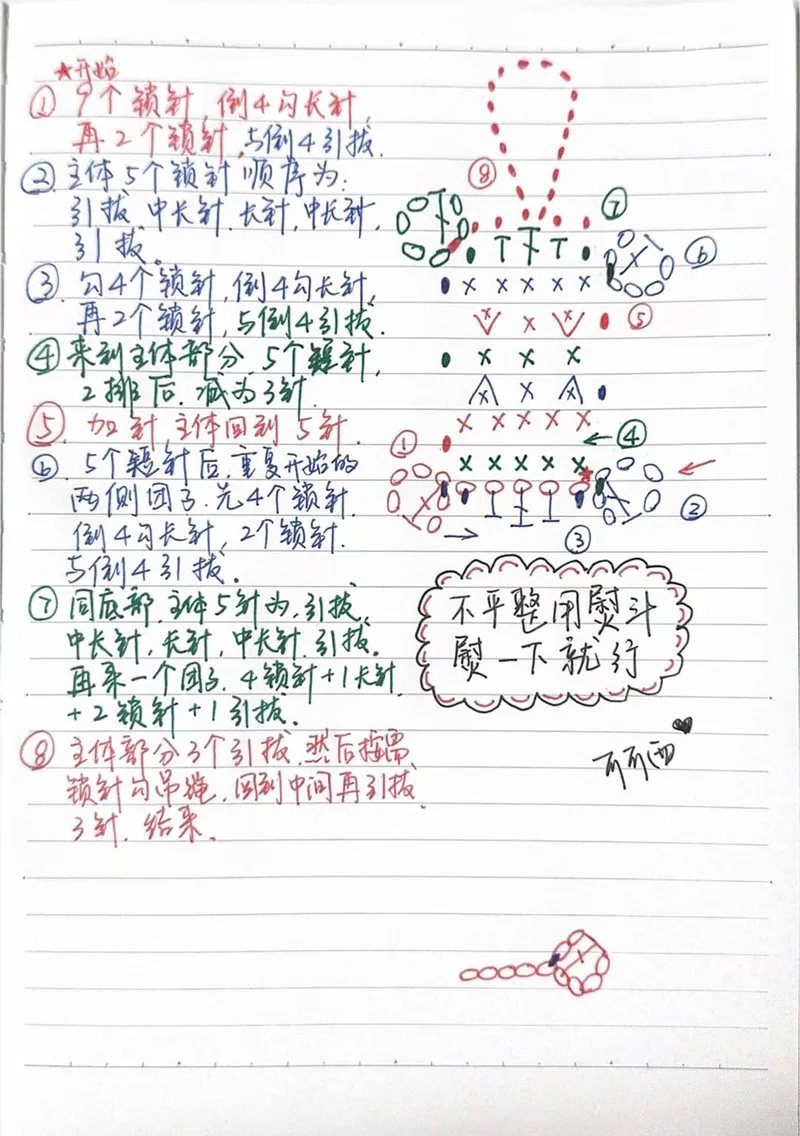 ★开始
① 9个锁针,倒4勾长针,
再2个锁针,与倒4引拔.
② 主体5个锁针顺序为:
引拔、中长针、长针,中长针,
引拔。
③ 勾4个锁针,倒4勾长针、
再2个锁针,与倒4引拔.
④ 来到主体部分、5个短针,
2排后、减为3针.
⑤ 加针,主体回到5针.
⑥ 5个短针后、重复开始的
两侧团子.先4个锁针.
倒4勾长针、2个锁针.
与倒4引拔.
⑦ 同底部、主体5针为、引拔、
中长针,长针,中长针.引拔、
再来一个团子、4锁针+1长针
+2锁针+1引拔.
⑧ 主体部分3个引拔、然后按需
锁针勾吊绳、回到中间再引拔、
3针、结束、
⑧
⑦
⑥
⑤
④
①
②
③
不平整用熨斗
熨一下就行